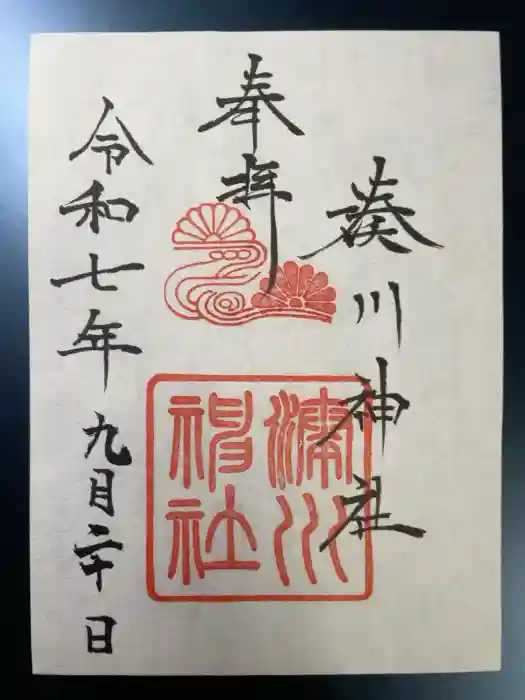 湊川神社
奉拝
令和七年九月二十日
湊川神社